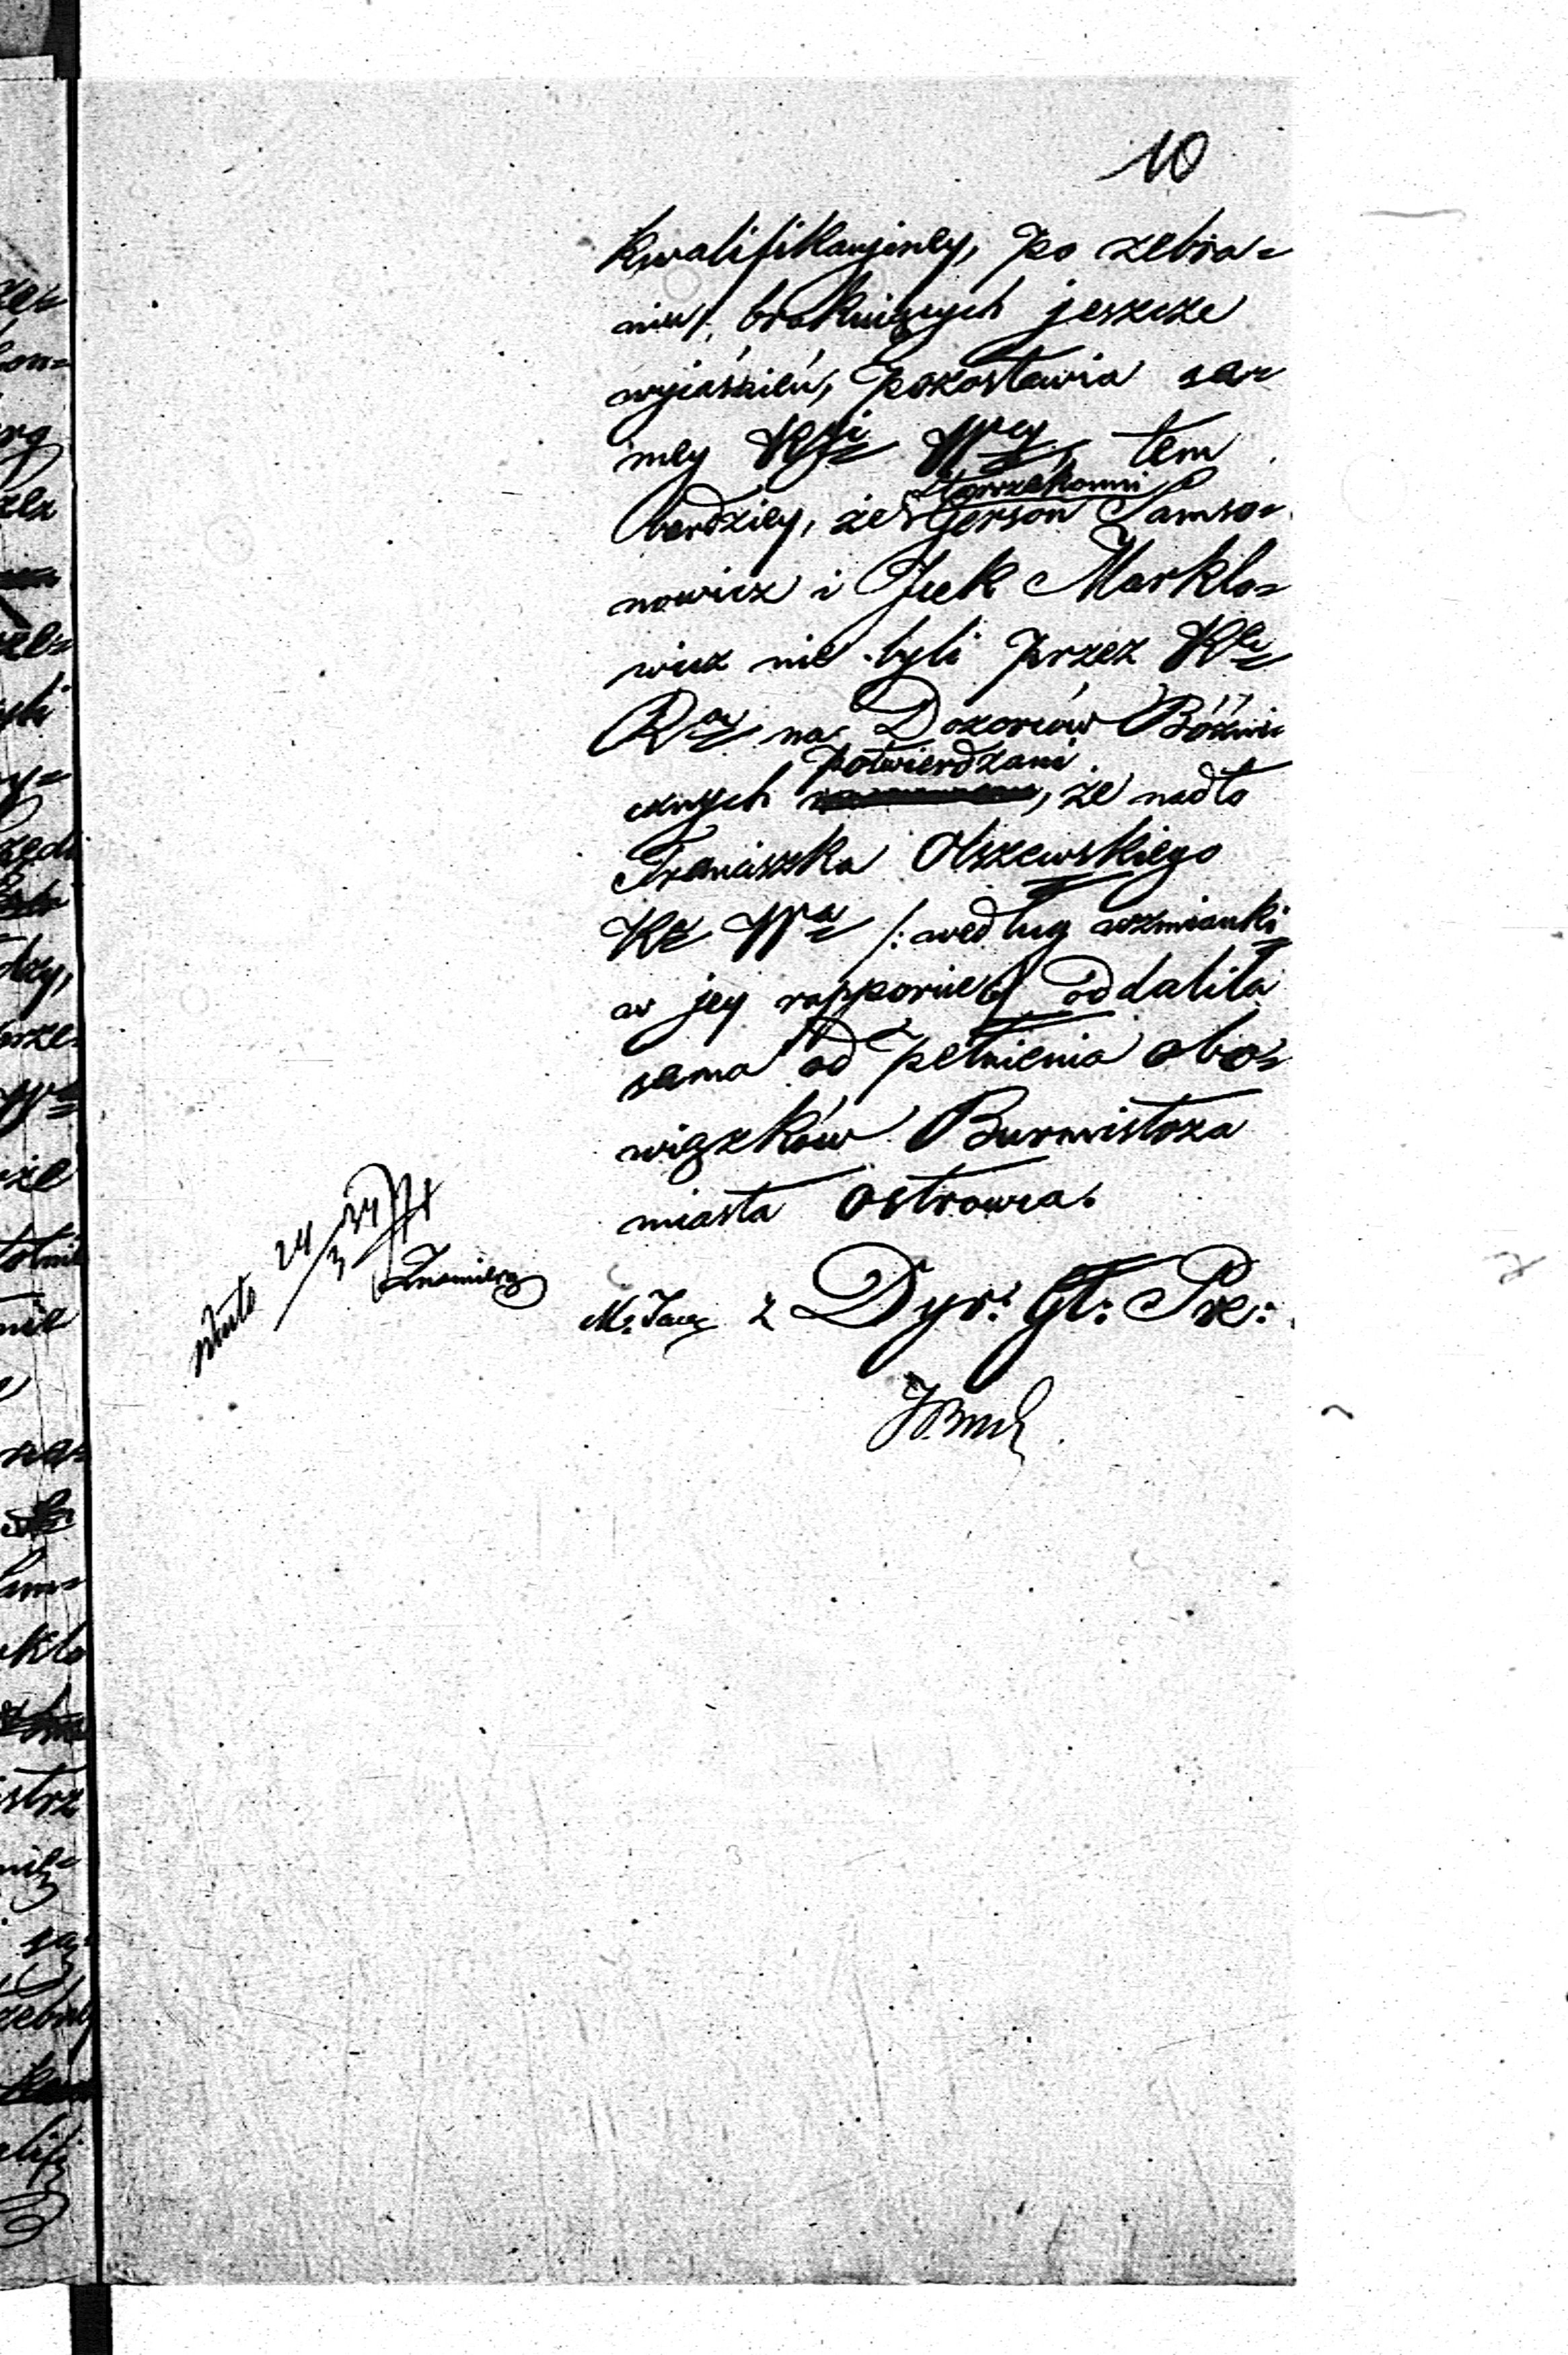 10
kwalifikacyjney, po zebra=
niu, brakuiących jeszcze
wyiaśnień, pozostawia sa=
mey Kssyi Wey, tem
bardziey, że Starozakonni Gerson Samso=
nowicz i Icek Markło=
wicz nie byli przez Kę
Rą na Dozorców Bóżni
cznych potwierdzani, że nadto
Franciszka Olszewskiego
Kа Wa /: według wzmianki
w jey rapporcie :/ oddaliła
sama od pełnienia obo=
wiązków Burmistrza
miasta Ostrowia.
24/3 34
z Dyr: Gł: Pre: